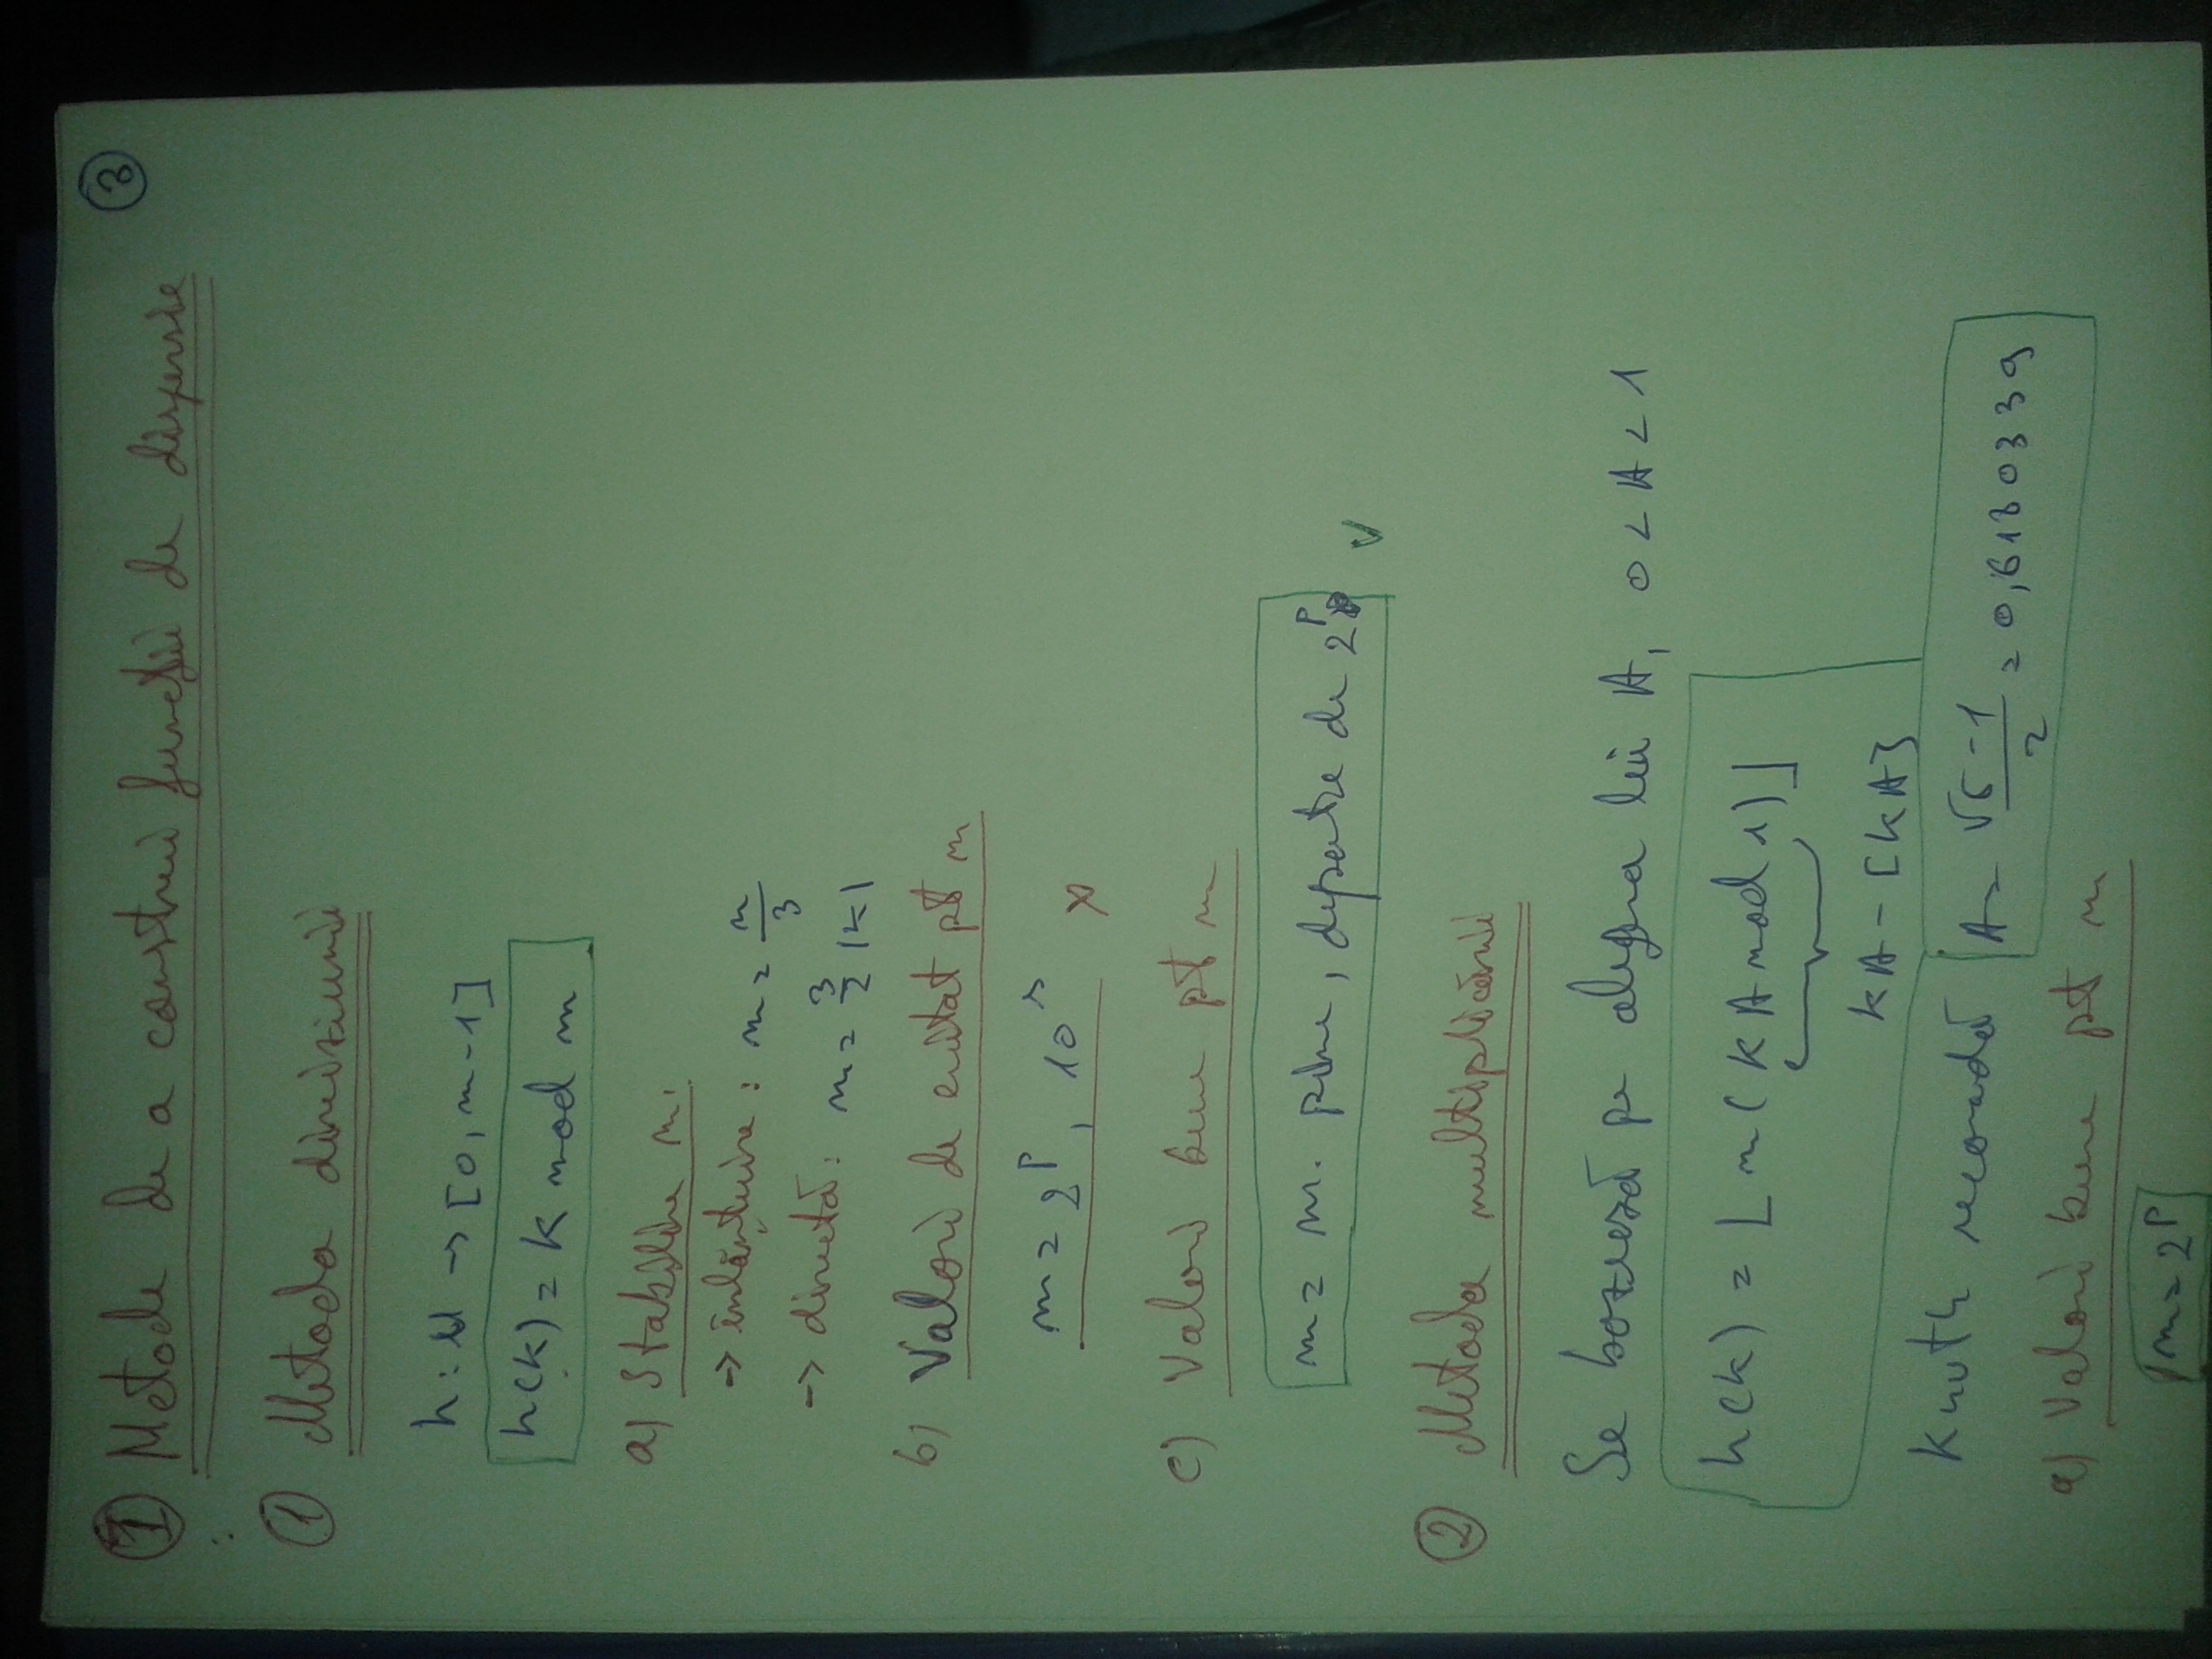 ③
Ⅰ Metode de a construi funcții de dispersie
① Metoda diviziunii
h: U → [0, m-1]
h(k) = k mod m
a) Stabilire m:
→ înlănțuire: m = n/3
→ directă: m = 3/2 |k|
b) Valori de evitat pt m
m = 2^p, 10^s x
c) Valori bune pt m
m = nr. prime, departe de 2^p v
② Metoda multiplicării
Se bazează pe alegerea lui A, 0 < A < 1
h(k) = ⌊m (kA mod 1)⌋
kA - [kA]
Knuth recomandă A = √5-1/2 = 0,6180339
a) Valori bune pt m
m = 2^p